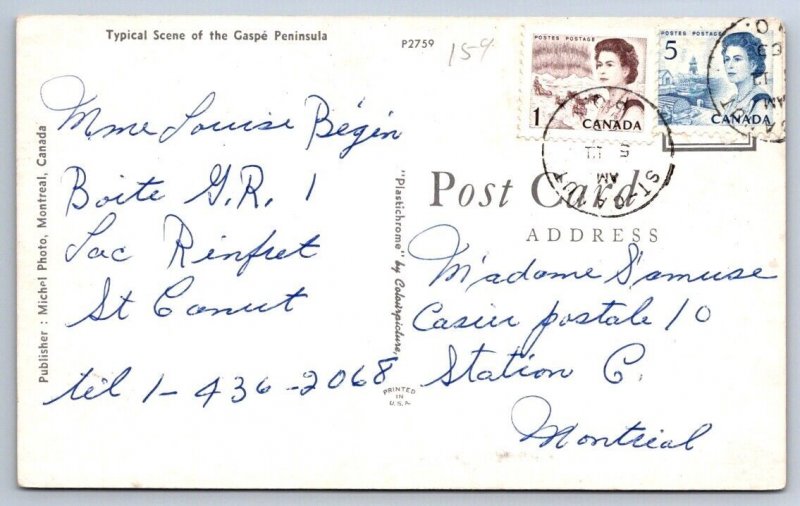 Typical Scene of the Gaspé Peninsula
P2759
159
POSTES POSTAGE
1
CANADA
POSTES POSTAGE
5
CANADA
AM
AM
11
5
Mme Louise Bégin
Boite G.R. 1
Lac Rinfret
St Canut
tél 1-436-2068
Publisher : Michel Photo, Montreal, Canada
"Plastichrome" by Colourpicture,
PRINTED
IN
U.S.A.
Post Card
ADDRESS
M'adame S'amuse
Casier postale 10
Station C.
Montréal